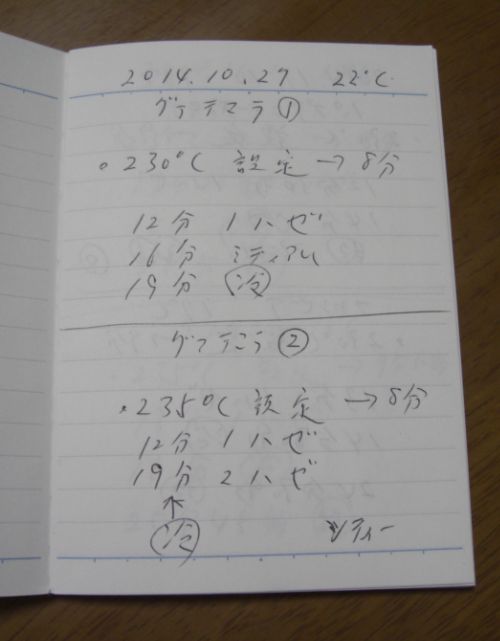 2014.10.27 22°C
グァテマラ ①
・230°C 設定 → 8分
12分 1ハゼ
16分 ミディアム
19分 冷
グァテマラ ②
・235°C 設定 → 8分
12分 1ハゼ
19分 2ハゼ
↑
冷 シティー